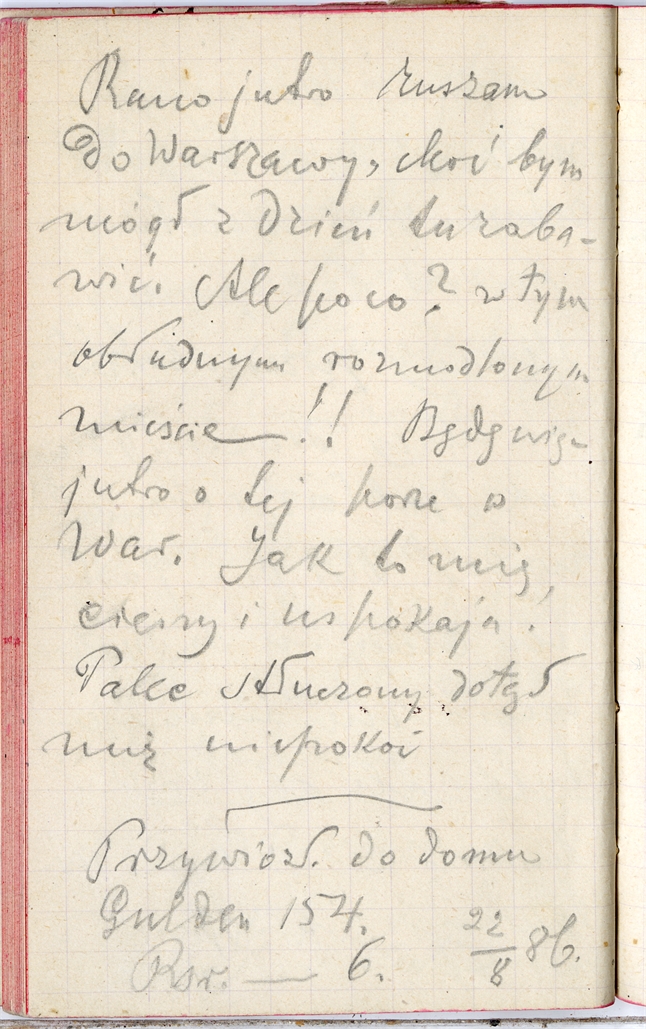 Rano jutro ruszam
do Warszawy, choć bym
mógł z dzień tu zaba-
wić. Ale po co? w tym
obłudnym rozmodlonym
mieście — !! Będę więc
jutro o tej porze w
War. Jak to mię
cieszy i uspokaja!
Palec stłuczony dotąd
mię niepokoi
Przywiozł. do domu
Gulden 154.
Rsr. — 6.
22/8 86.